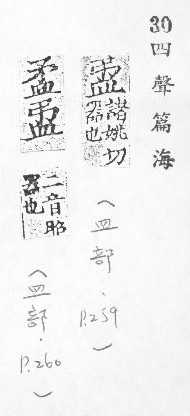 30 四聲篇海
諸姚切
器也
(皿部.P.259)
二音昭
器也
(皿部.P.260)